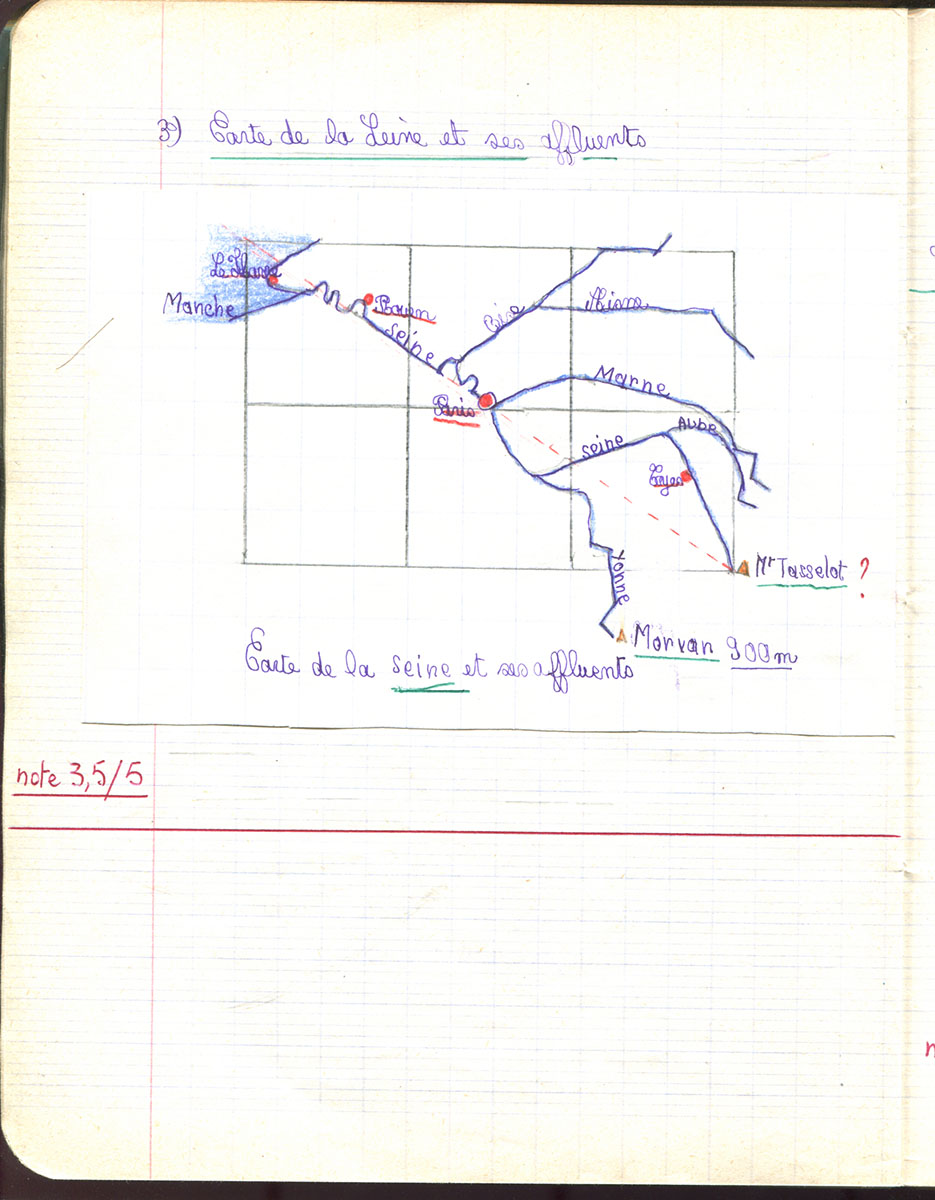 3°) Carte de la Seine et ses affluents
Le Havre
Manche
Rouen
Seine
Oise
Aisne
Marne
Paris
Aube
seine
Troyes
Yonne
Mt Tasselot ?
Morvan 900m
Carte de la seine et ses affluents
note 3,5/5